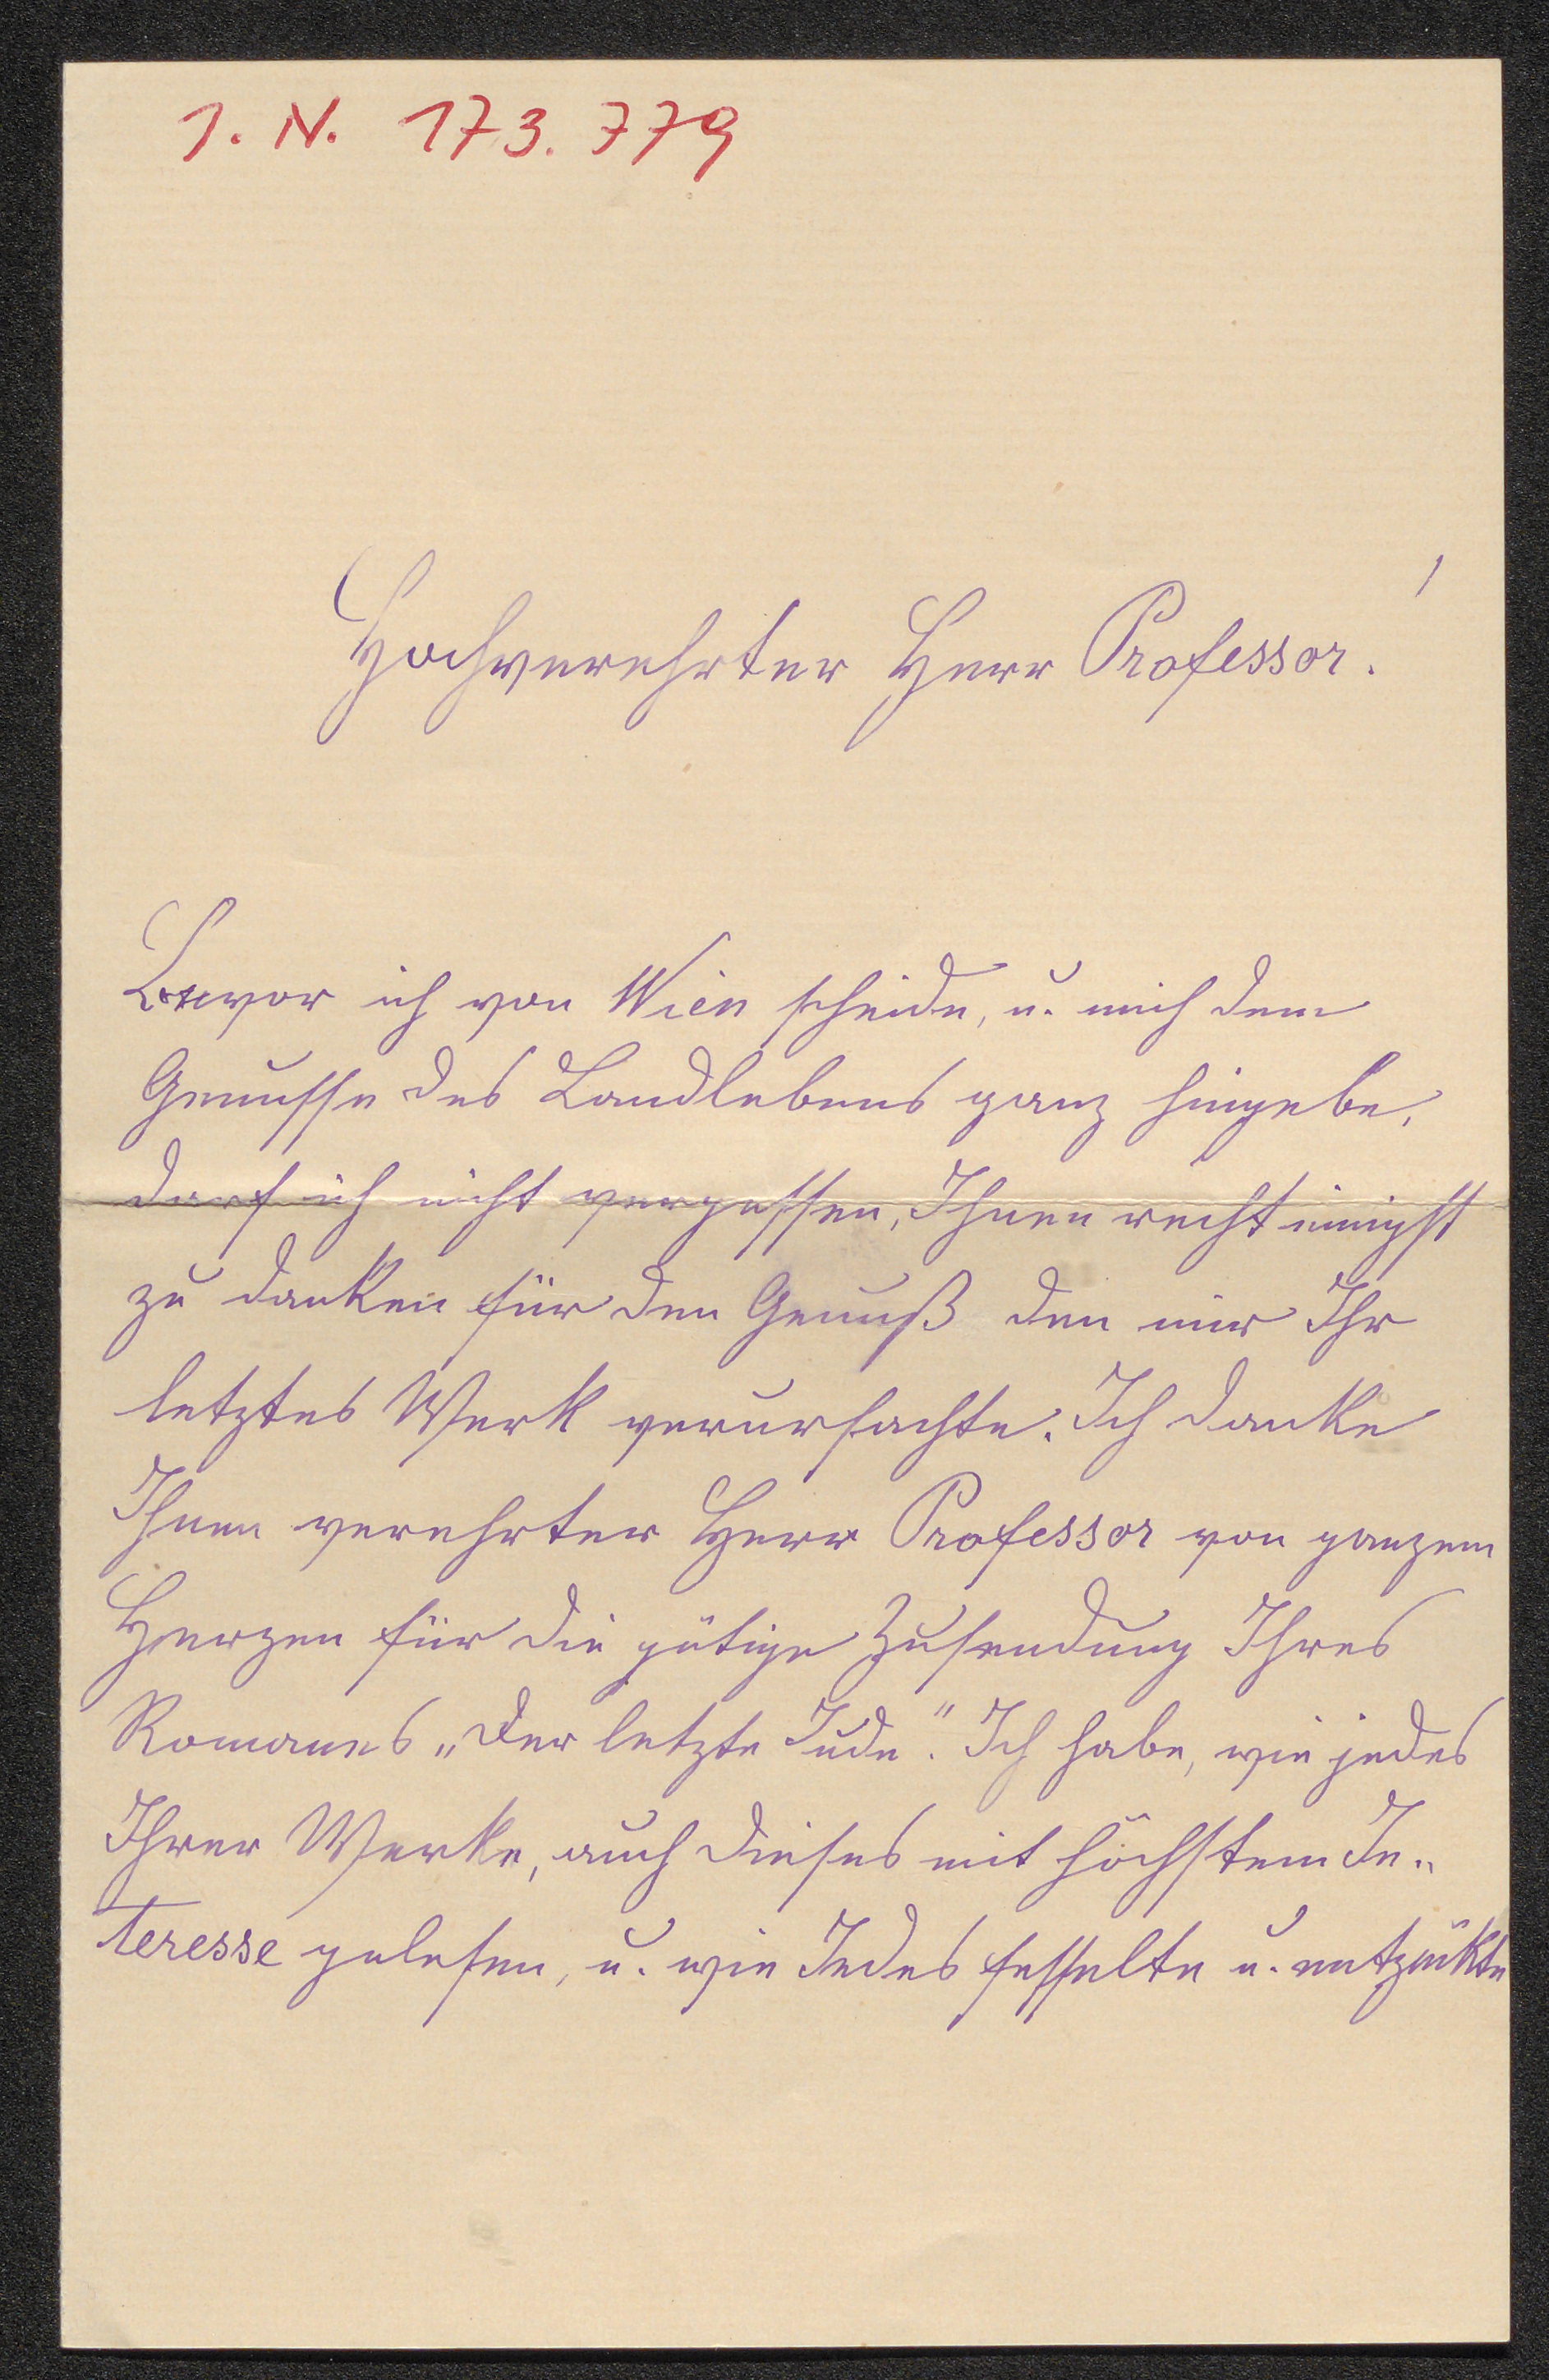 I. N. 173.779
Hochverehrter Herr Professor!
Bevor ich von Wien scheide, u. mich dem
Genusse des Landlebens ganz hingebe,
darf ich nicht vergessen, Ihnen recht innigst
zu danken für den Genuß den mir Ihr
letztes Werk verursachte. Ich danke
Ihnen verehrter Herr Professor von ganzem
Herzen für die gütige Zusendung Ihres
Romanes „Der letzte Jude". Ich habe, wie jedes
Ihrer Werke, auch dieses mit höchstem In„
teresse gelesen, u. wie Jedes fesselte u. entzükte